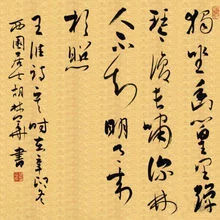 独坐幽篁里弹
琴复长啸深林
人不知明月来
相照
王维诗一首时在辛卯冬
西園居士胡林军書